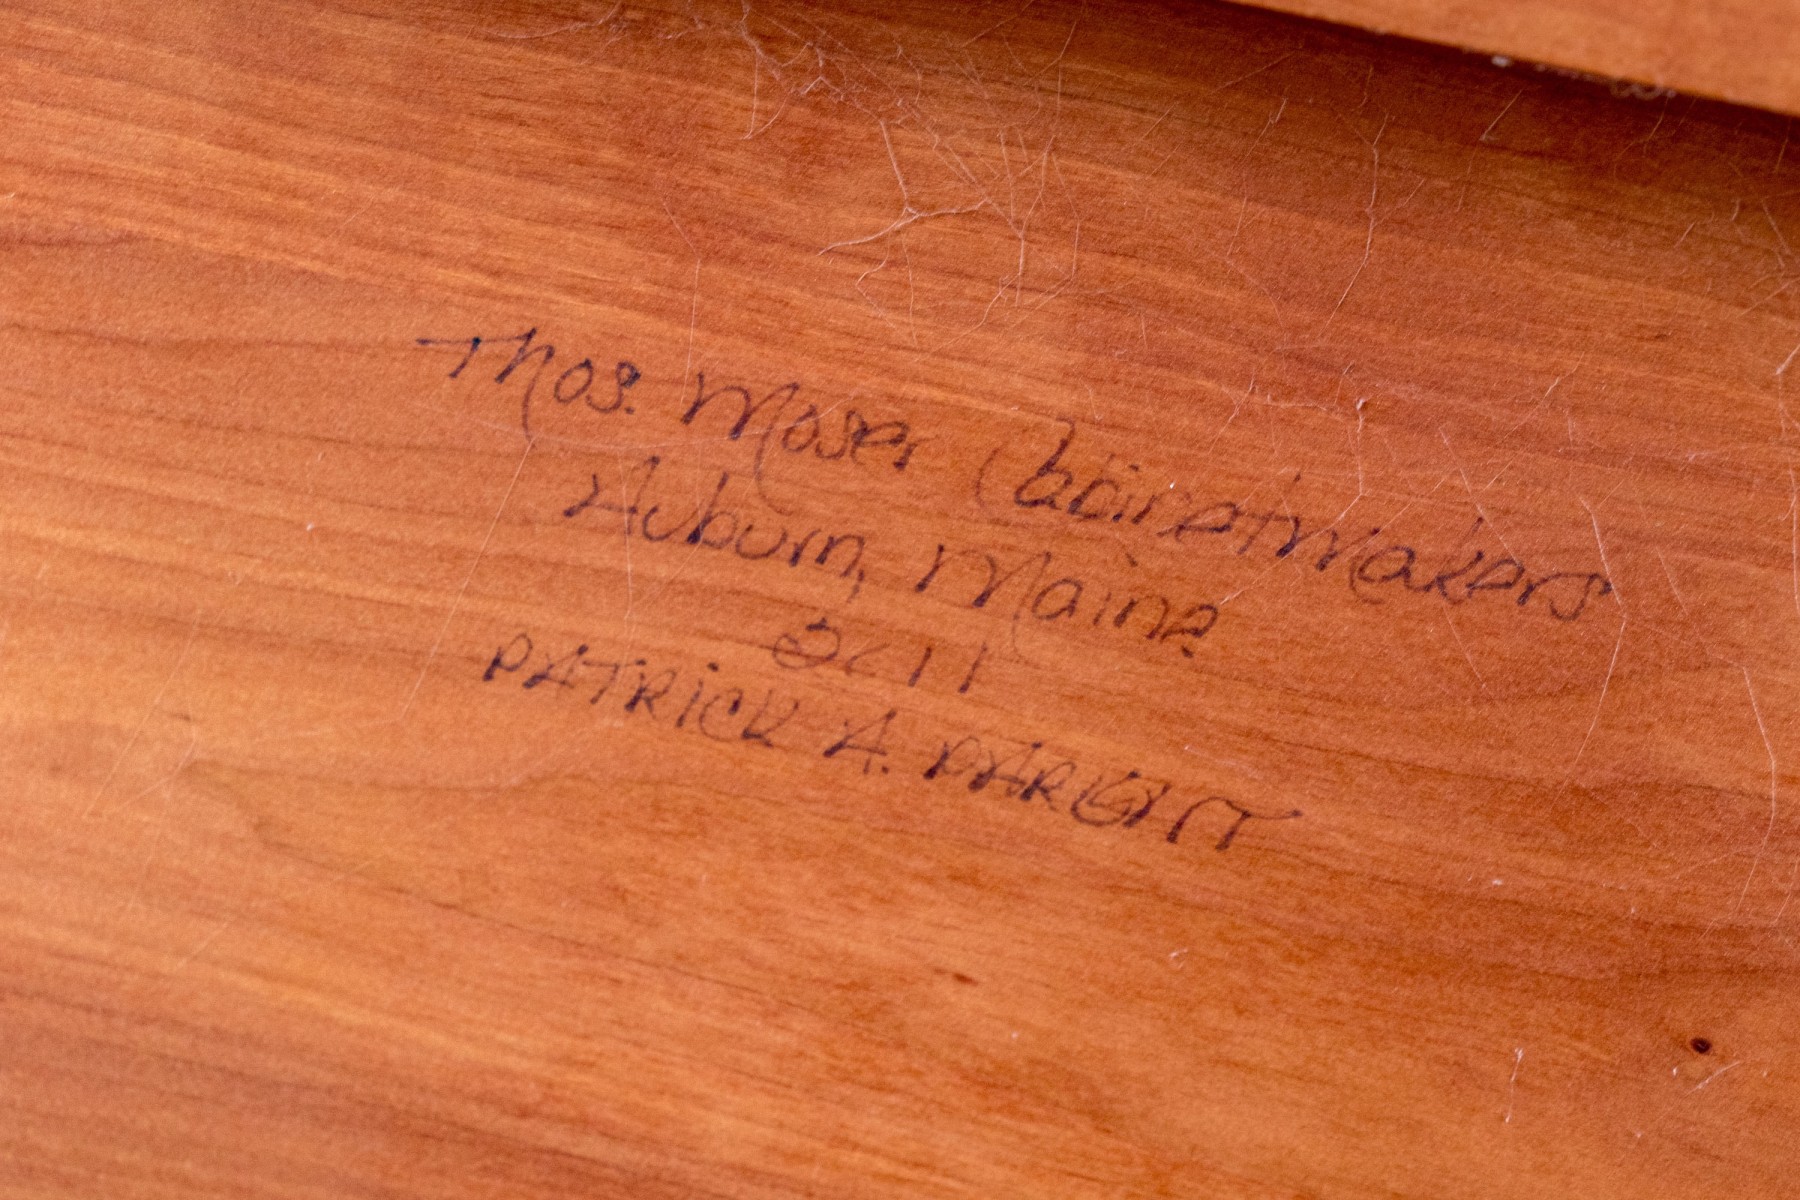 Thos. Moser Cabinetmakers
Auburn, Maine
2011
PATRICK A.